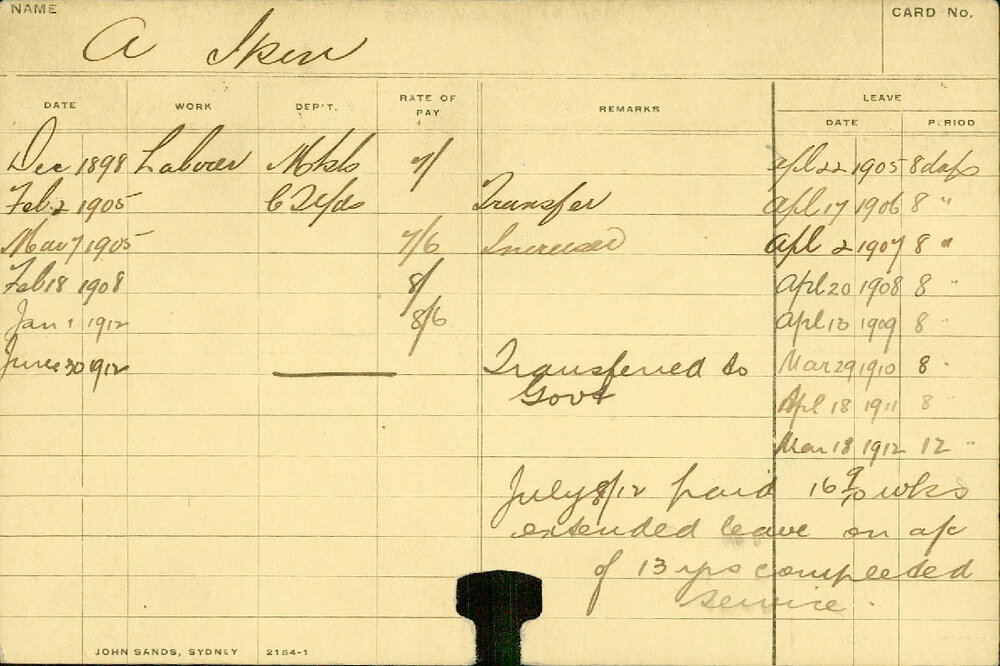 NAME
CARD No.
A Iken
DATE WORK DEP'T. RATE OF PAY REMARKS LEAVE
DATE PERIOD
Dec 1898 Laborer Mkts 7/ Apl 22 1905 8 days
Feb. 2 1905 C Yds Transfer Apl 17 1906 8 "
Mar 7 1905 7/6 Increase Apl 2 1907 8 "
Feb 18 1908 8/ Apl 20 1908 8 "
Jan 1 1912 8/6 Apl 13 1909 8 "
June 30 1912 Transferred to Mar 29 1910 8 "
Govt Apl 18 1911 8 "
Mar 18 1912 12 "
July 8/12 paid 16 9/10 wks
extended leave on a/c
of 13 yrs completed
service.
JOHN SANDS, SYDNEY 2154-1